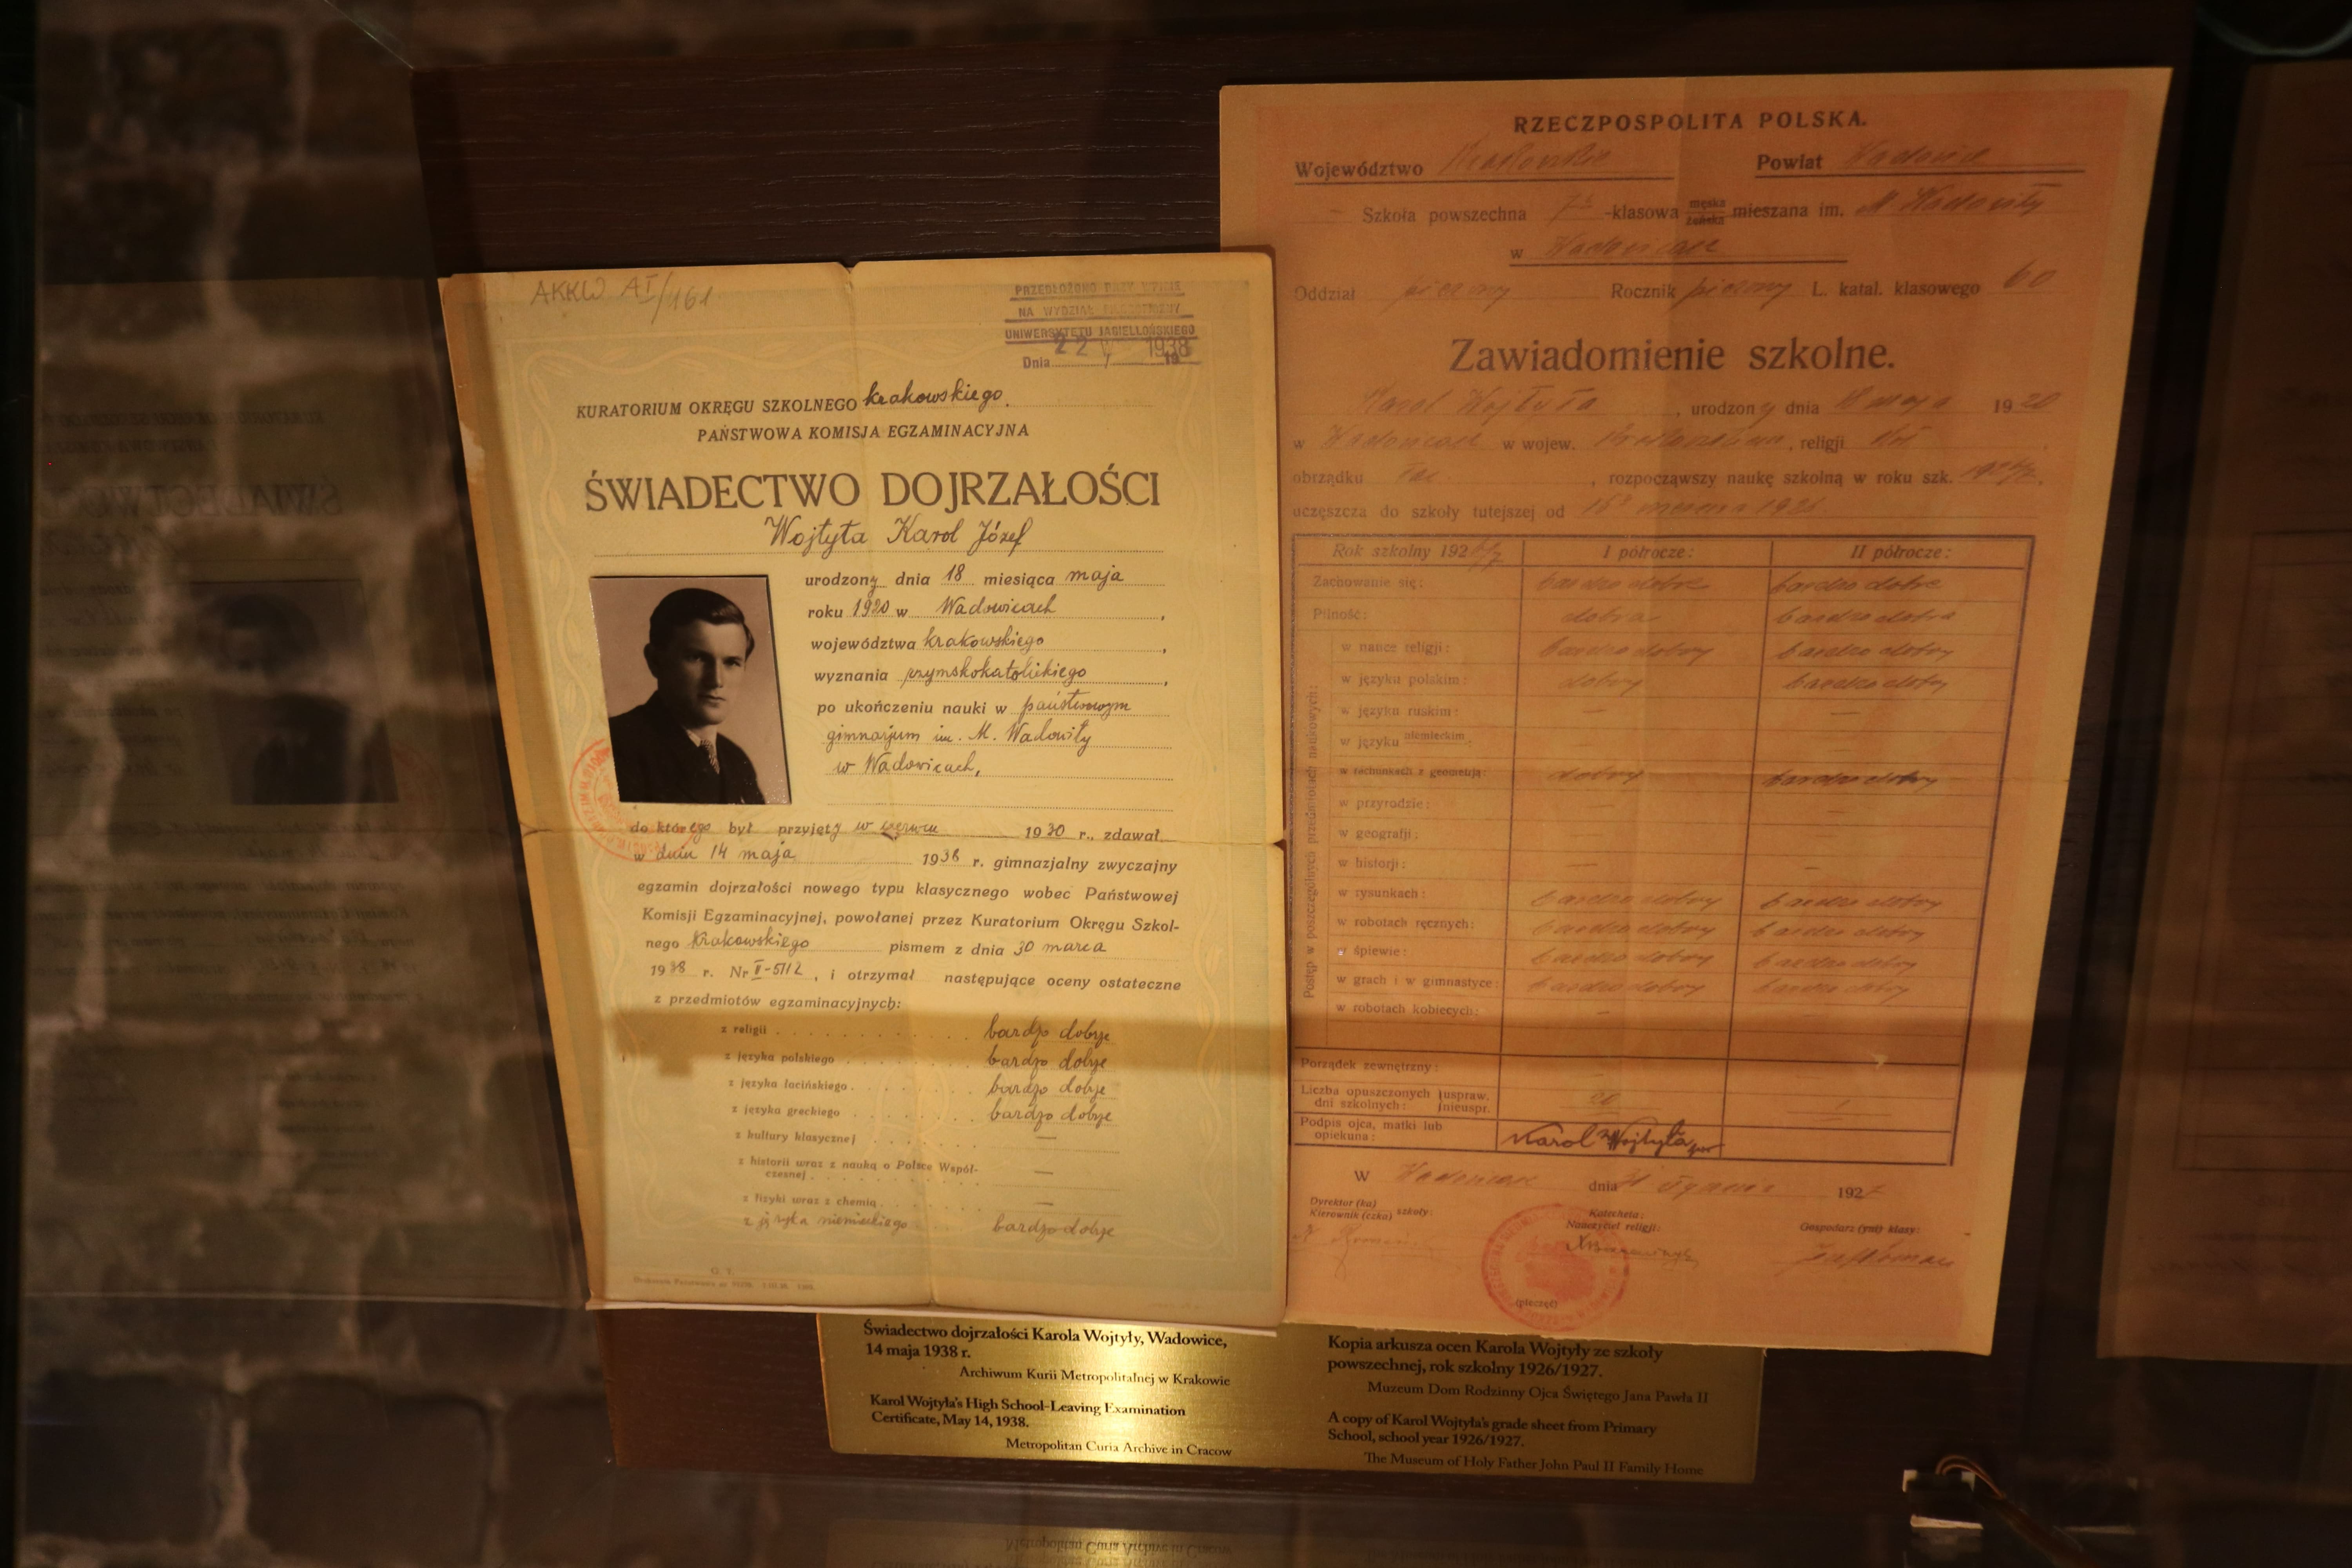 AKKW AI/161
PRZEDŁOŻONO PRZY WPISIE
NA WYDZIAŁ FILOZOFICZNY
UNIWERSYTETU JAGIELLOŃSKIEGO
Dnia 22 1938
KURATORIUM OKRĘGU SZKOLNEGO krakowskiego.
PAŃSTWOWA KOMISJA EGZAMINACYJNA
ŚWIADECTWO DOJRZAŁOŚCI
Wojtyła Karol Józef
urodzony dnia 18 miesiąca maja
roku 1920 w Wadowicach,
województwa krakowskiego,
wyznania rzymskokatolickiego,
po ukończeniu nauki w państwowym
gimnazjum im. M. Wadowity
w Wadowicach,
do którego był przyjęty w czerwcu 1930 r., zdawał
w dniu 14 maja 1938 r. gimnazjalny zwyczajny
egzamin dojrzałości nowego typu klasycznego wobec Państwowej
Komisji Egzaminacyjnej, powołanej przez Kuratorium Okręgu Szkol-
nego Krakowskiego pismem z dnia 30 marca
1938 r. Nr II-5112, i otrzymał następujące oceny ostateczne
z przedmiotów egzaminacyjnych:
z religii bardzo dobrze
z języka polskiego bardzo dobrze
z języka łacińskiego bardzo dobrze
z języka greckiego bardzo dobrze
z kultury klasycznej —
z historii wraz z nauką o Polsce Współ-
czesnej —
z fizyki wraz z chemią —
z języka niemieckiego bardzo dobrze
RZECZPOSPOLITA POLSKA.
Województwo Krakowskie Powiat Wadowice
Szkoła powszechna 7 -klasowa męska żeńska mieszana im. M Wadowity
w Wadowicach
Oddział Rocznik L. katal. klasowego 60
Zawiadomienie szkolne.
Karol Wojtyła, urodzony dnia 18 maja 1920
w Wadowicach w wojew. , religji
obrządku łac. , rozpocząwszy naukę szkolną w roku szk. 1926/7,
uczęszcza do szkoły tutejszej od 15 1926
Rok szkolny 1926/7 I półrocze: II półrocze:
Zachowanie się: bardzo dobre bardzo dobre
Pilność: dobra bardzo dobra
Postęp w poszczególnych przedmiotach naukowych:
w nauce religji: bardzo dobry bardzo dobry
w języku polskim: dobry bardzo dobry
w języku ruskim: — —
w języku niemieckim: —
w rachunkach z geometrją: dobry bardzo dobry
w przyrodzie: — —
w geografji:
w historji: — —
w rysunkach: bardzo dobry bardzo dobry
w robotach ręcznych: bardzo dobry bardzo dobry
w śpiewie: bardzo dobry bardzo dobry
w grach i w gimnastyce: bardzo dobry bardzo dobry
w robotach kobiecych: — —
Porządek zewnętrzny:
Liczba opuszczonych uspraw.
dni szkolnych: nieuspr.
Podpis ojca, matki lub
opiekuna: Karol Wojtyła
W Wadowicach dnia 31 stycznia 1927
Dyrektor (ka)
Kierownik (czka) szkoły:
Katecheta:
Nauczyciel religji:
Gospodarz (yni) klasy:
(pieczęć)
Świadectwo dojrzałości Karola Wojtyły, Wadowice,
14 maja 1938 r.
Archiwum Kurii Metropolitalnej w Krakowie
Karol Wojtyła's High School-Leaving Examination
Certificate, May 14, 1938.
Metropolitan Curia Archive in Cracow
Kopia arkusza ocen Karola Wojtyły ze szkoły
powszechnej, rok szkolny 1926/1927.
Muzeum Dom Rodzinny Ojca Świętego Jana Pawła II
A copy of Karol Wojtyła's grade sheet from Primary
School, school year 1926/1927.
The Museum of Holy Father John Paul II Family Home